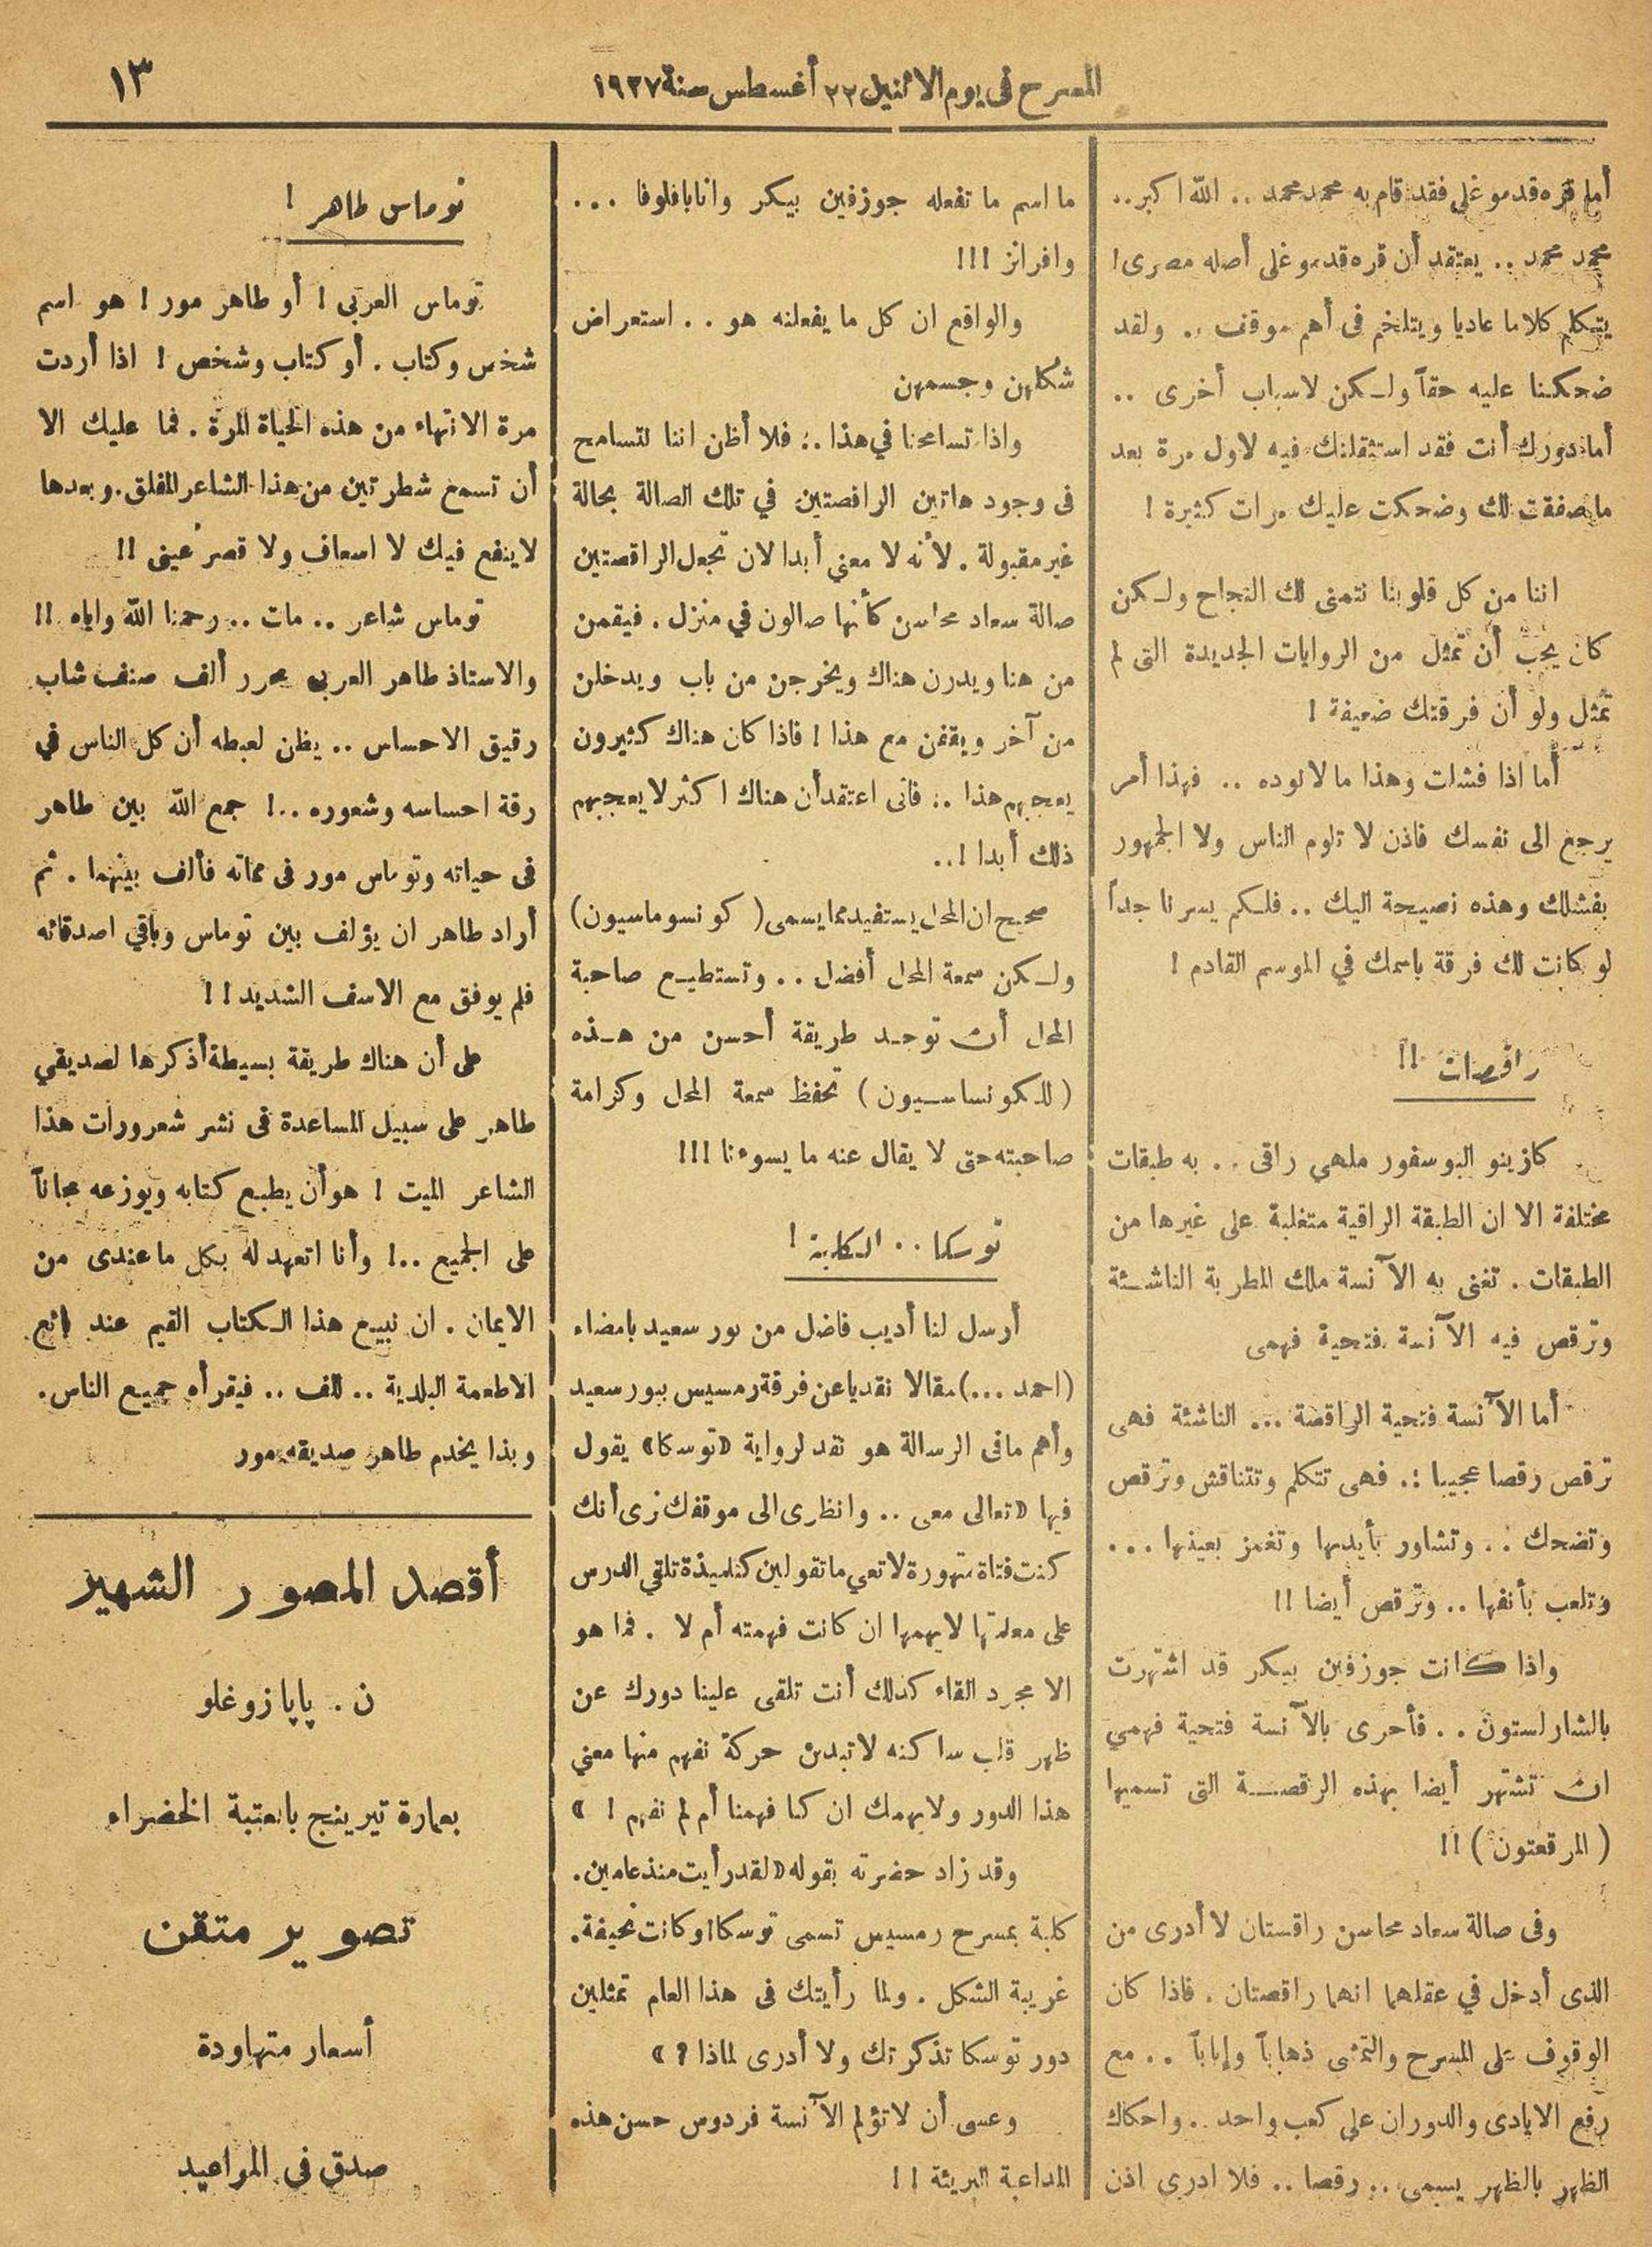 المسرح فى يوم الاثنين ٢٢ أغسطس سنة ١٩٢٧
١٣
أما قره قدموغلى فقد قام به محمد محمد .. الله اكبر ..
محمد محمد .. يعتقد أن قره قدموغلى أصله مصرى !
يتكلم كلاما عاديا ويتلخم فى أهم موقف .. ولقد
ضحكنا عليه حقاً ولكن لاسباب أخرى ..
أما دورك أنت فقد استثقلنك فيه لاول مرة بعد
ما صفقت لك وضحكت عليك مرات كثيرة !
اننا من كل قلوبنا نتمنى لك النجاح ولكن
كان يجب أن تمثل من الروايات الجديدة التى لم
تمثل ولو أن فرقتك ضعيفة !
أما اذا فشلت وهذا ما لا نوده .. فهذا أمر
يرجع الى نفسك فاذن لا تلوم الناس ولا الجمهور
بفشلك وهذه نصيحة اليك .. فلكم يسرنا جداً
لو كانت لك فرقة باسمك في الموسم القادم !
راقصات !!
كازينو البوسفور ملهى راقى .. به طبقات
مختلفة الا ان الطبقة الراقية متغلبة على غيرها من
الطبقات . تغنى به الآنسة ملك المطربة الناشئة
وترقص فيه الآنسة فتحية فهمى
أما الآنسة فتحية الراقصة ... الناشئة فهى
ترقص رقصا عجيبا .. فهى تتكلم وتتناقش وترقص
وتضحك .. وتشاور بأيديها وتغمز بعينها ...
وتلعب بأنفها .. وترقص أيضا !!
واذا كانت جوزفين بيكر قد اشتهرت
بالشارلستون .. فأحرى بالآنسة فتحية فهمي
ان تشتهر أيضا بهذه الرقصة التى تسميها
( المرقعتون ) !!
وفى صالة سعاد محاسن راقستان لا أدرى من
الذى أدخل في عقلهما انهما راقصتان . فاذا كان
الوقوف على المسرح والتمشى ذهاباً وإياباً .. مع
رفع الايادى والدوران على كعب واحد .. واحكاك
الظهر بالظهر يسمى .. رقصا .. فلا ادرى اذن
ما اسم ما تفعله جوزفين بيكر وانا بافلوفا ...
وافرانز !!!
والواقع ان كل ما يفعلنه هو .. استعراض
شكلهن وجسمهن
واذا تسامحنا في هذا .. فلا أظن اننا لتسامح
فى وجود هاتين الراقصتين في تلك الصالة بحالة
غير مقبولة . لأنه لا معنى أبدا لان تجعل الراقصتين
صالة سعاد محاسن كأنها صالون في منزل . فيقمن
من هنا ويدرن هناك ويخرجن من باب ويدخلن
من آخر ويقفن مع هذا ! فاذا كان هناك كثيرون
يعجبهم هذا .. فانى اعتقد أن هناك اكثر لا يعجبهم
ذلك أبدا !..
صحيح ان المحل يستفيد مما يسمى ( كونسوماسيون )
ولكن سمعة المحل أفضل .. وتستطيع صاحبة
المحل أن توجد طريقة أحسن من هذه
( للكونساسيون ) تحفظ سمعة المحل وكرامة
صاحبته حتى لا يقال عنه ما يسوءنا !!!
توسكا .. الكلبة !
أرسل لنا أديب فاضل من بور سعيد بامضاء
( احمد ... ) مقالا نقديا عن فرقة رمسيس ببور سعيد
وأهم مافى الرسالة هو نقد لرواية « توسكا » يقول
فيها « تعالى معى .. وانظرى الى موقفك نرى أنك
كنت فتاة متهورة لا تعي ما تقولين كتلميذة تلقي الدرس
على معلمتها لا يهمها ان كانت فهمته أم لا . فما هو
الا مجرد القاء كذلك أنت تلقى علينا دورك عن
ظهر قلب ساكنه لا تبدين حركة نفهم منها معني
هذا الدور ولا يهمك ان كنا فهمنا أم لم نفهم ! »
وقد زاد حضرته بقوله « لقد رأيت منذ عامين .
كلبة بمسرح رمسيس تسمى توسكا وكانت نحيفة .
غريبة الشكل . ولما رأيتك فى هذا العام تمثلين
دور توسكا تذكرتك ولا أدرى لماذا ? »
وعسى أن لا تؤلم الآنسة فردوس حسن هذه
المداعبة البريئة !!
توماس طاهر !
توماس العربى ! أو طاهر مور ! هو اسم
شخص وكتاب . أو كتاب وشخص ! اذا أردت
مرة الانتهاء من هذه الحياة المرة . فما عليك الا
أن تسمع شطرتين من هذا الشاعر المفلق . وبعدها
لا ينفع فيك لا اسعاف ولا قصر عينى !!
توماس شاعر .. مات .. رحمنا الله واياه !!
والاستاذ طاهر العربى محرر ألف صنف شاب
رقيق الاحساس .. يظن لعبطه أن كل الناس في
رقة احساسه وشعوره ..! جمع الله بين طاهر
فى حياته وتوماس مور فى مماته فألف بينهما . ثم
أراد طاهر ان يؤلف بين توماس وباقي اصدقائه
فلم يوفق مع الاسف الشديد !!
على أن هناك طريقة بسيطة أذكرها لصديقي
طاهر على سبيل المساعدة فى نشر شعرورات هذا
الشاعر الميت ! هو أن يطبع كتابه ويوزعه مجاناً
على الجميع ..! وأنا اتعهد له بكل ما عندى من
الايمان . ان نبيع هذا الكتاب القيم عند بائع
الاطعمة البلدية .. للف .. فيقرأه جميع الناس .
وبذا يخدم طاهر صديقه مور
أقصد المصور الشهير
ن . پاپازوغلو
بعمارة تيرينج بالعتبة الخضراء
تصوير متقن
أسعار متهاودة
صدق فى المواعيد